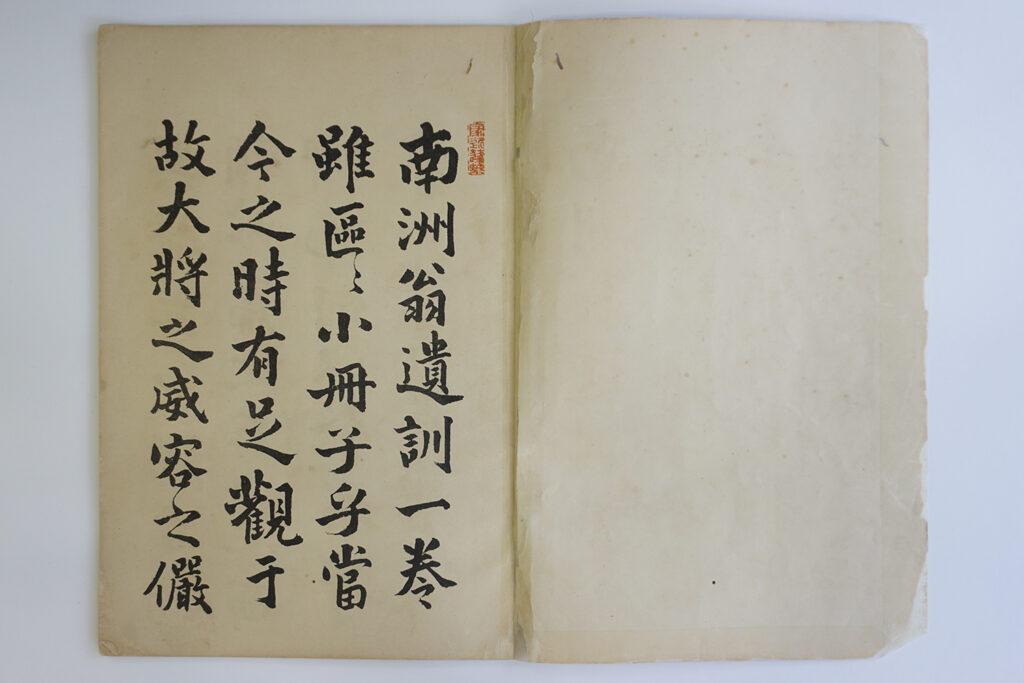 南洲翁遺訓一巻
雖區〻小冊子乎當
今之時有足觀于
故大將之威容之儼